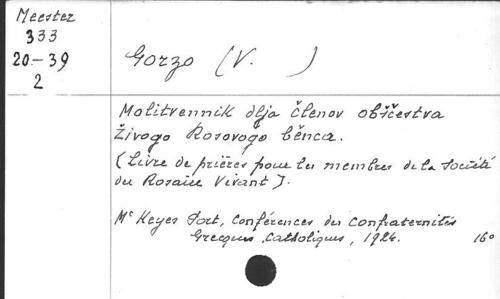 Meester
333
20-39
2
Gorzo (V. )
Molitvennik dlja členov obščestva
živogo Rosovogo běnca.
(Livre de prières pour les membres de la Société
du Rosaire Vivant).
Mc Keyes Port, Conférences des Confraternités
Grecques Catholiques, 1924. 16°